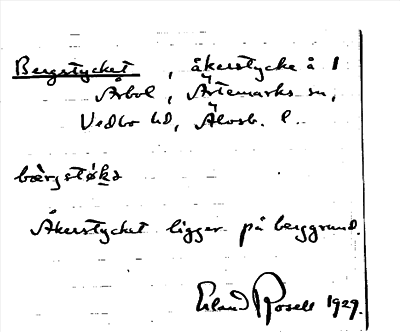 Bergstycket, åkerstycke å 1
Årbol, Ärtemarks sn,
Vedbo hd, Älvsb. l.
bæ̀rgstø̂kə
Åkerstycket ligger på berggrund.
Erland Rosell 1929.